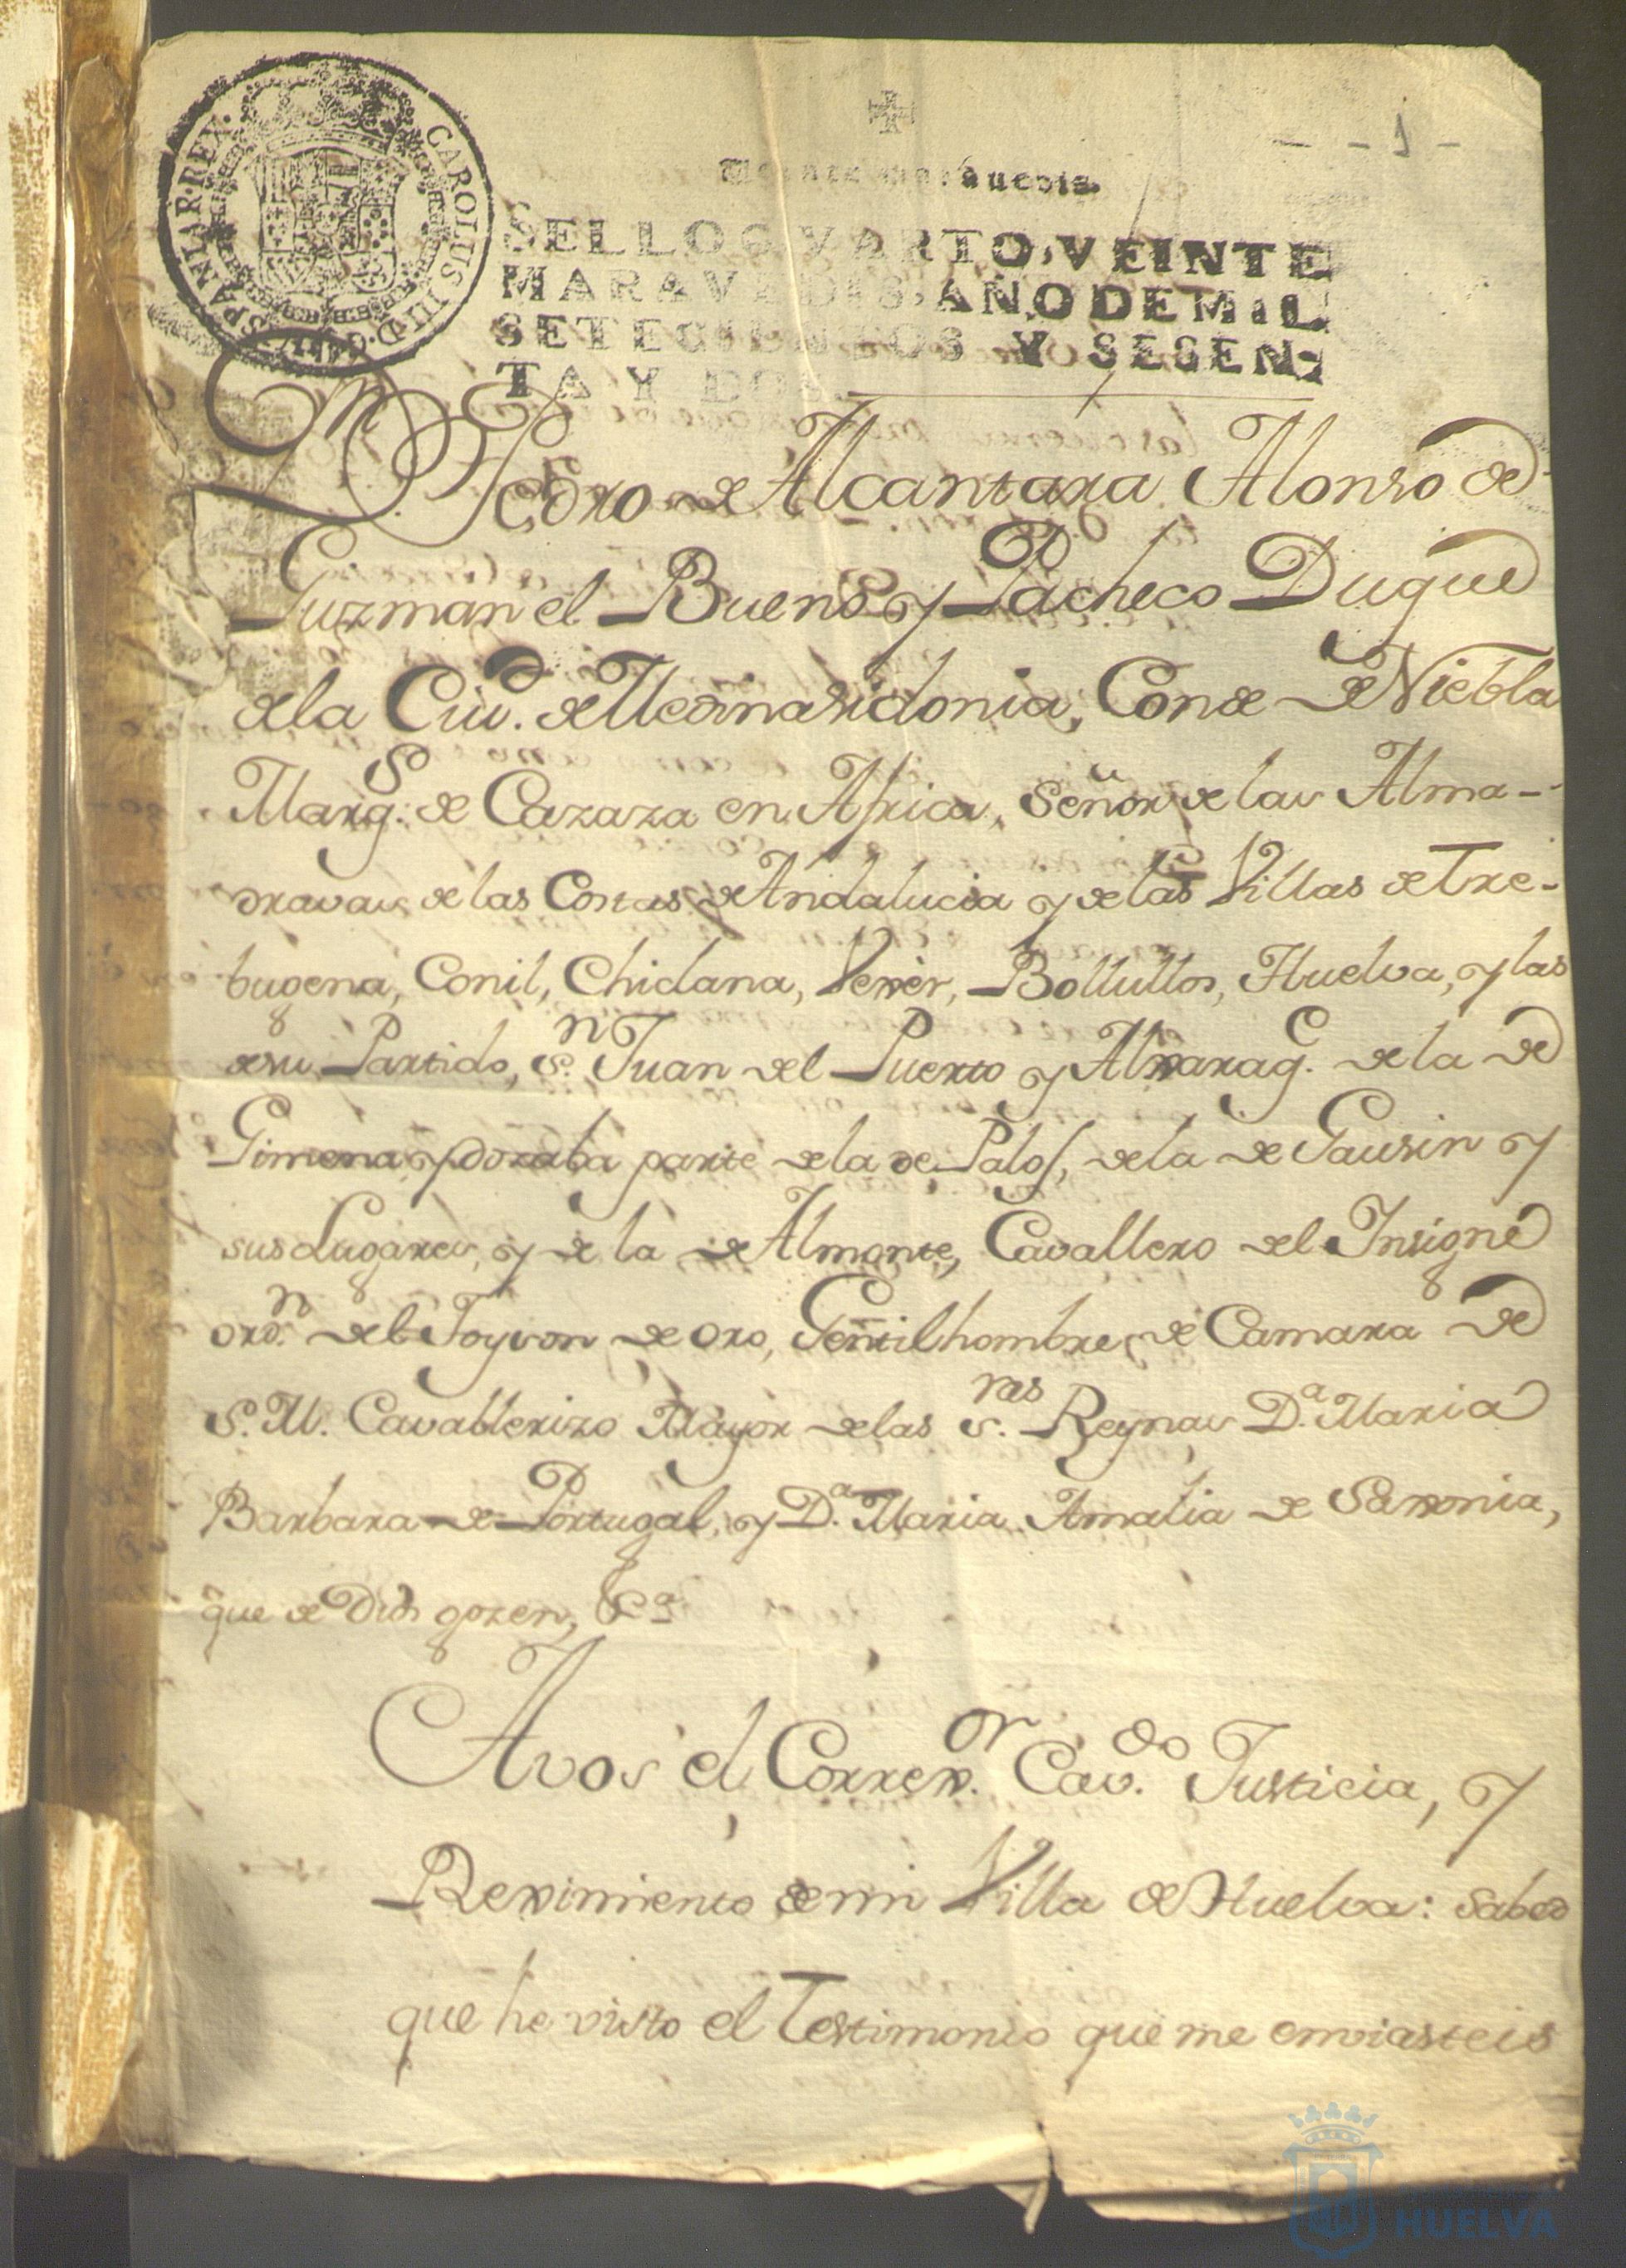 CAROLUS III D. G. HISPANIAR. REX.
- - 1 -
Veinte maravedis.
SELLO QVARTO, VEINTE
MARAVEDIS, AÑO DE MIL
SETECIENTOS Y SESEN-
TA Y DOS.
Dn Pedro de Alcantara Alonso de
Guzman el Bueno y Pacheco Duque
de la Ciud. de Medinasidonia, Conde de Niebla
Marqs. de Cazaza en Africa, Señor de las Alma-
dravas de las Costas de Andalucia y de las Villas de Tre-
bugena, Conil, Chiclana, Vexer, Bollullos, Huelva, y las
de su Partido, Sn. Juan del Puerto y Alxaraqe. de la de
Gimena y dozaba parte de la de Palos, de la de Gausin y
sus Lugares, y de la de Almonte, Cavallero del Insigne
ordn. del Toyson de oro, Gentilhombre de Camara de
S. M. Cavallerizo Mayor de las S.ras Reynas D.a Maria
Barbara de Portugal, y D.a Maria Amalia de Saxonia,
que de Dios gozen, &a
A vos el Correxor. Cavdo. Justicia, y
Reximiento de mi Villa de Huelva: sabed
que he visto el Testimonio que me enviasteis
HUELVA